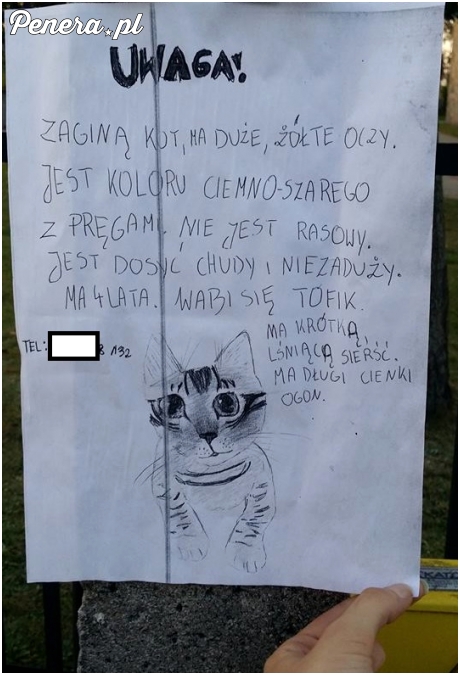 Penera.pl
UWAGA!
ZAGINĄ KOT, MA DUŻE, ŻÓŁTE OCZY.
JEST KOLORU CIEMNO-SZAREGO
Z PRĘGAMI. NIE JEST RASOWY.
JEST DOSYĆ CHUDY I NIEZADUŻY.
MA 4 LATA. WABI SIĘ TOFIK.
TEL: 8 132
MA KRÓTKĄ,
LŚNIĄCĄ SIERŚĆ.
MA DŁUGI CIENKI
OGON.